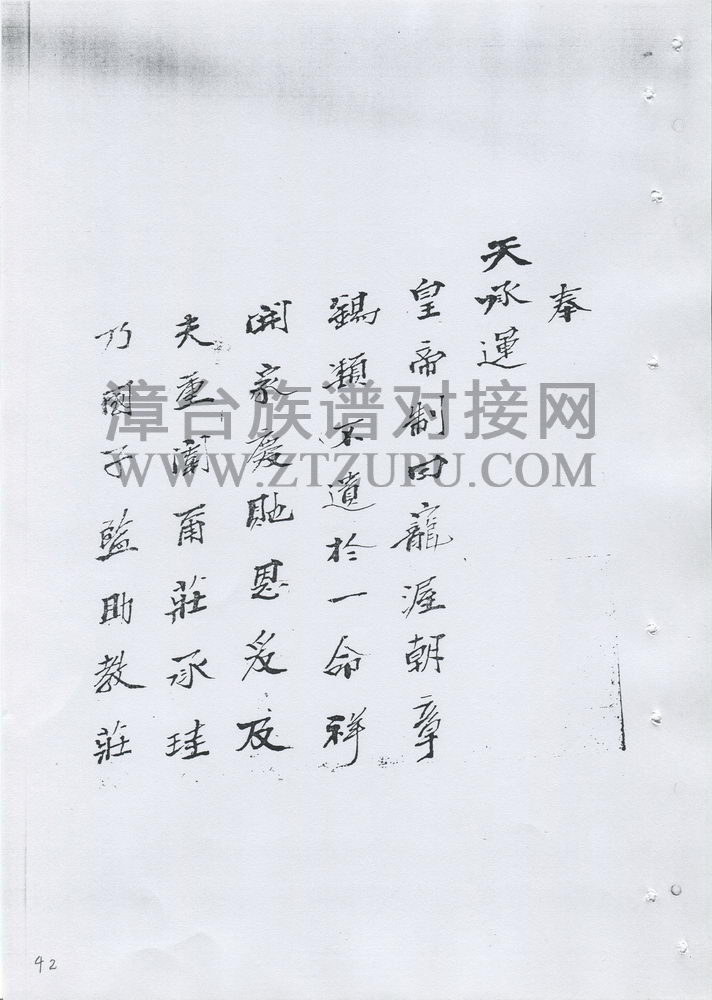 奉
天承運
皇帝制曰寵渥朝章
錫類不遺於一命祥
開家慶貤恩爰及
夫重闈爾莊承珪
乃國子監助教莊
漳台族谱对接网
WWW.ZTZUPU.COM
42